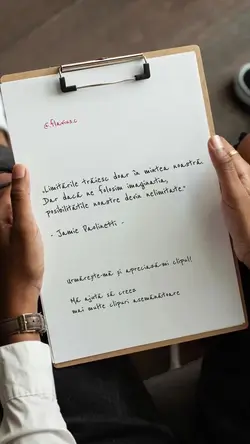 @flaviusc
„Limitările trăiesc doar în mintea noastră.
Dar dacă ne folosim imaginația,
posibilitățile noastre devin nelimitate."
- Jamie Paolinetti -
Urmărește-mă și apreciază-mi clipul!
Mă ajută să creez
mai multe clipuri asemănătoare